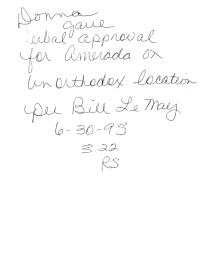 Donna
gave
erbal approval
for Amerada on
unorthodox location
per Bill LeMay
6-30-95
3:22
RS